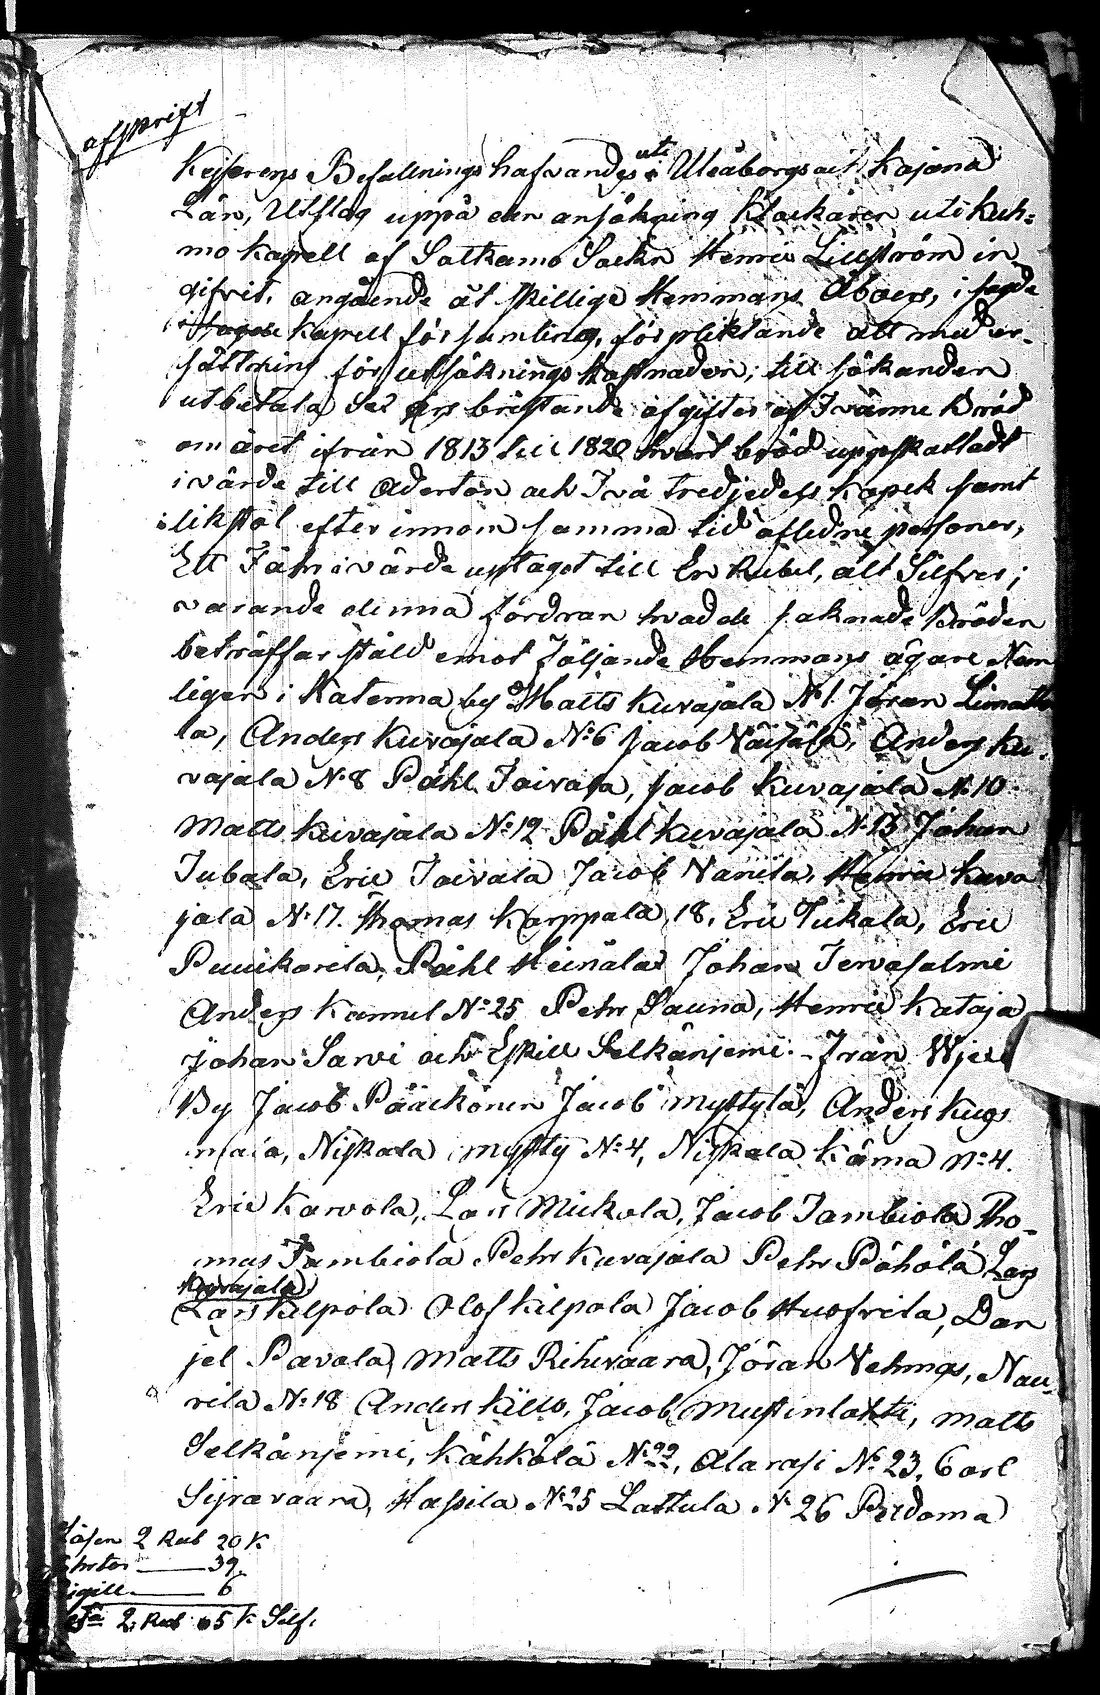 afskrift
Kejserens Befallningshafvandes uti Uleåborgs och Kajana
Län, Utslag uppå en ansökning Klockaren uti Kuh-
mo Kapell af Sotkamo Sockn Henric Lillström in
gifvit, angående åtskillige Hemmans Åboers, i sagde
Kapell församling, förpliktande att med er-
sättning för utsöknings kostnaden, till sökanden
utbetala dels bristande afgifter af Tvänne Bröd
om året ifrån 1813 till 1820 hvart bröd uppskattadt
i värde till Aderton och Två tredjedels kopek samt
likstol efter innom samma tid aflidne personer,
Ett i värde uptagot till En Rubel, alt Silfver;
varande denna fordran hvad de saknade Bröden
beträffar stäld emot följande Hemmans ägare Nem
ligen i Katerma by Matts Kuvajala N:1. Jöran Limatta
la, Anders Kuvajala N:6 Jacob Väisälä, Anders Ku-
vajala N:8 Påhl Taivala, Jacob Kuvajala N:10
Matts Kuvajala N:12 Påhl Kuvajala N:13 Johan
Tubala, Eric Taivala Jacob Vanila, Henric Kuva
jala N:17. Thomas Karppala 18, Eric Tukala, Eric
Puukarila, Påhl Heinälä Johan Tervasalmi
Anders Kamul N:25 Petr Sauna, Henric Kataja
Johan Sarvi och Eskill Selkänjemi. - Från
By Jacob Pääckönen Jacob Myttylä, Anders Kugs
maia, Niskala mystty N:4, Niskala Käma N:4.
Eric Karvola, Lars Mickola, Jacob Tambiola Tho-
mas Tambiola Petr Kuvajala Petr Pöhölä Lars
Kuvajala
Lars Kilpola Olof Kilpola Jacob Huofrila, Dan
jel Pavola Matts Rihivaara, Jöran Vehmas, Nau-
rila N:18 Anders Kello, Jacob Mustinlahti, Matts
Selkänjemi, Kähkölä N:22, Alarasi N:23, Carl
Sipovaara, Hassila N:25 Lattula N:26 Pudoma
Lösen 2 Rub 20 K
39
Sigill 6
2 Rub 65 K Silf.